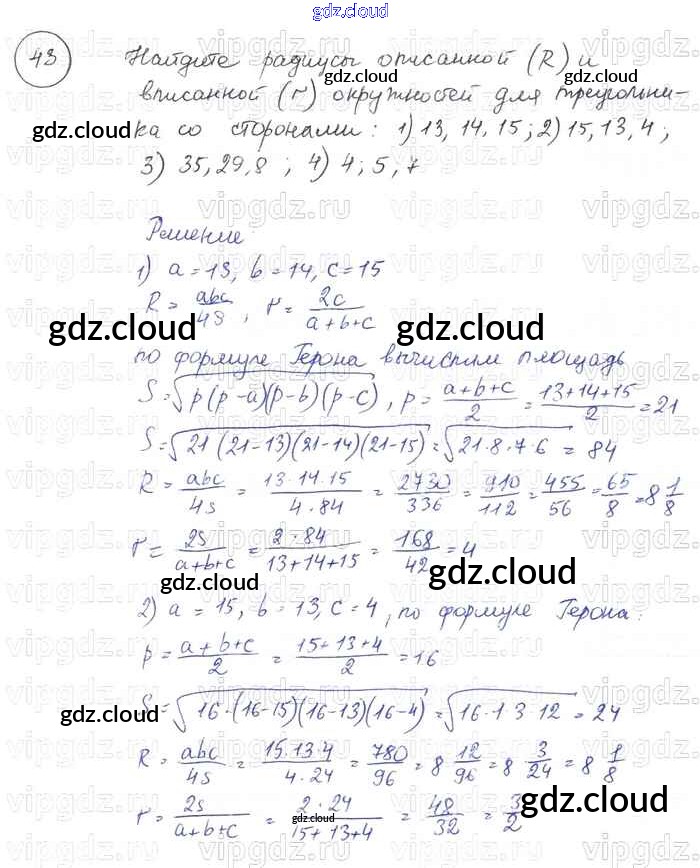 gdz.cloud
43 Найдите радиусы описанной (R) и
gdz.cloud
вписанной (r) окружностей для треугольни-
gdz.cloud ка со сторонами: 1) 13, 14, 15; 2) 15, 13, 4;
3) 35, 29, 8; 4) 4; 5, 7
Решение
1) a = 13, b = 14, c = 15
R = abc/4S, r = 2c/a+b+c
gdz.cloud gdz.cloud
по формуле Герона вычислим площадь
S = √p(p-a)(p-b)(p-c), p = a+b+c/2 = 13+14+15/2 = 21
S = √21(21-13)(21-14)(21-15) = √21·8·7·6 = 84
R = abc/4s = 13·14·15/4·84 = 2730/336 = 910/112 = 455/56 = 65/8 = 8 1/8
r = 2s/a+b+c = 2·84/13+14+15 = 168/42 = 4
gdz.cloud gdz.cloud
2) a = 15, b = 13, c = 4, по формуле Герона:
p = a+b+c/2 = 15+13+4/2 = 16
S = √16·(16-15)(16-13)(16-4) = √16·1·3·12 = 24
gdz.cloud
R = abc/4s = 15·13·4/4·24 = 780/96 = 8 12/96 = 8 3/24 = 8 1/8
gdz.cloud
r = 2s/a+b+c = 2·24/15+13+4 = 48/32 = 3/2
gdz.cloud